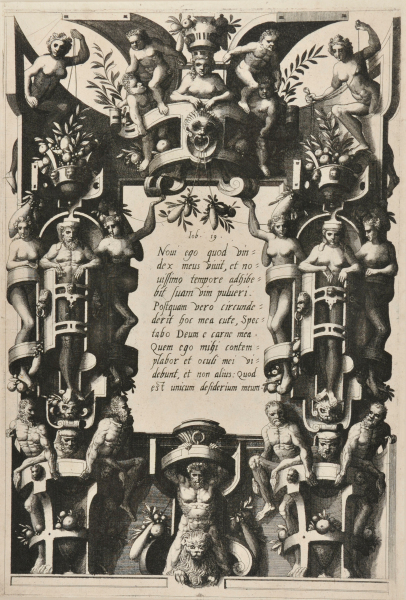 Iob. 19.
Novi ego quod vin-
dex meus vivit, et no-
vissimo tempore adhibe-
bit suam vim pulveri.
Postquam vero circunde-
derit hoc mea cute, Spec-
tabo Deum e carne mea.
Quem ego mihi contem-
plabor et oculi mei vi-
debunt, et non alius: Quod
est unicum desiderium meum